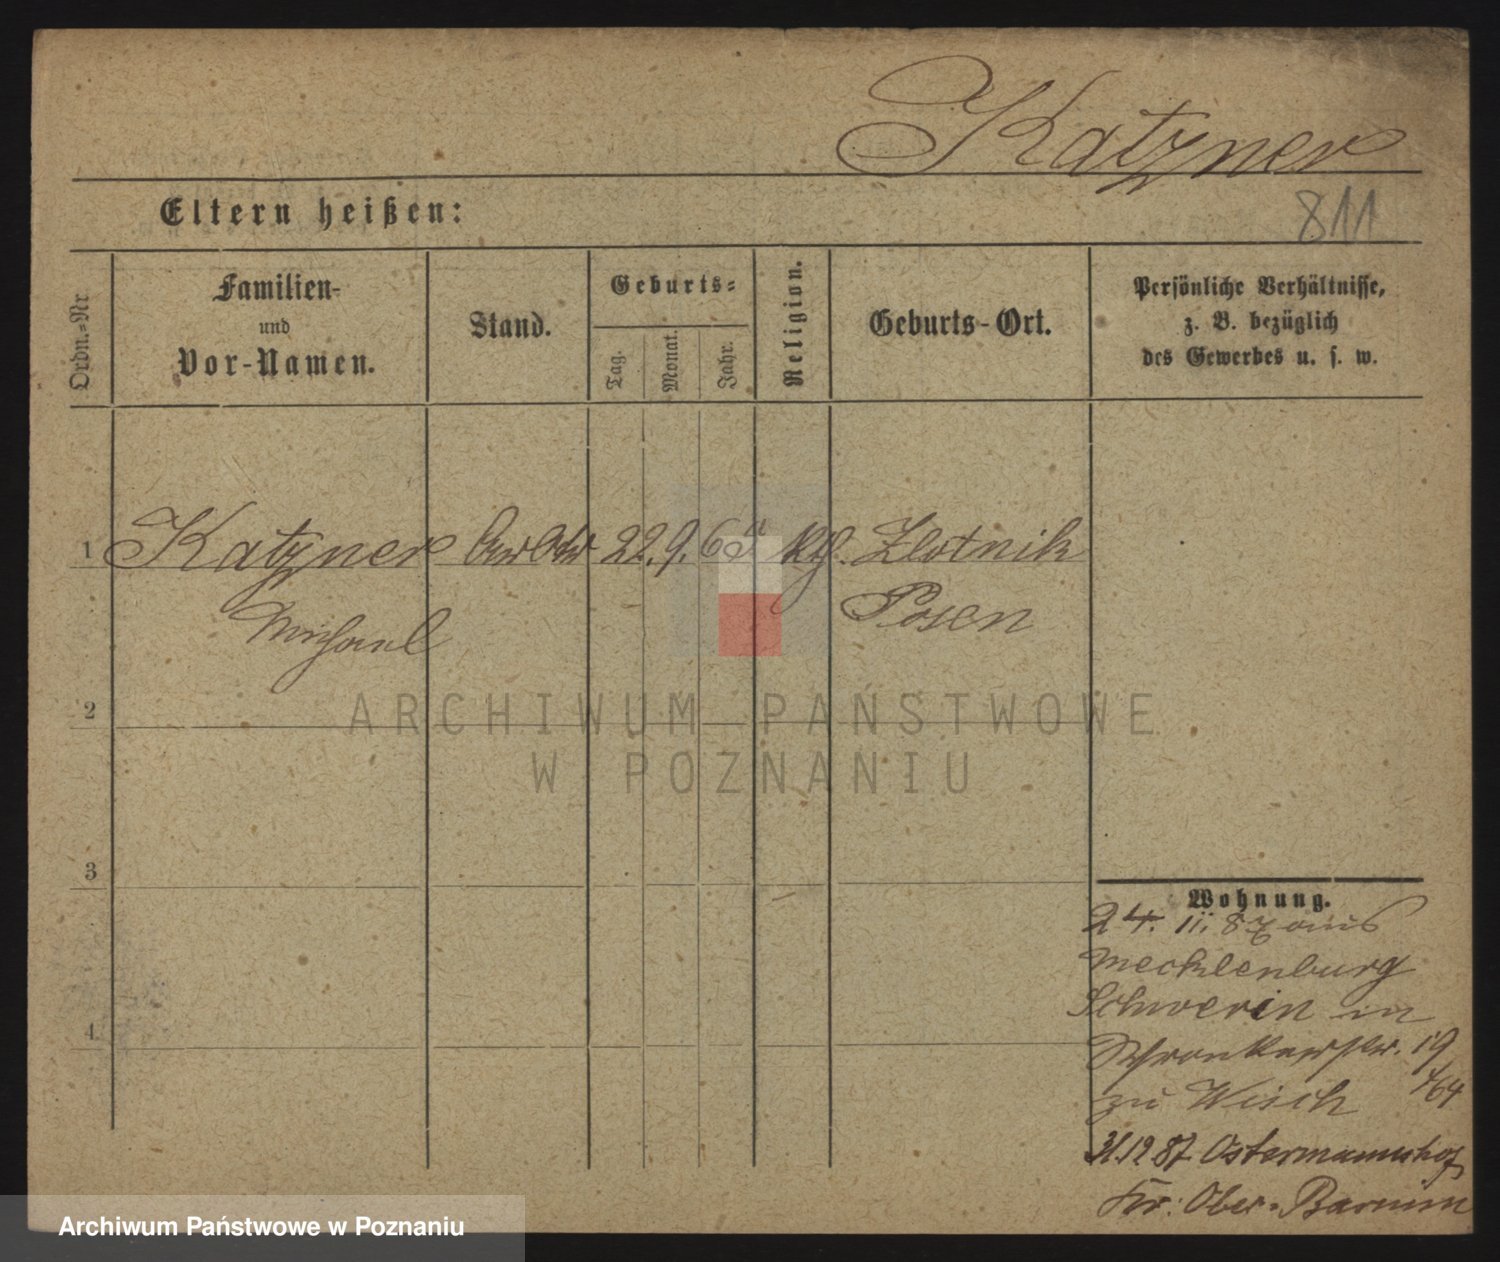 Katzner
811
Eltern heißen:
Ordn.=Nr
Familien-
und
Vor-Namen.
Stand.
Geburts=
Tag.
Monat.
Jahr.
Religion.
Geburts-Ort.
Persönliche Verhältnisse,
z. B. bezüglich
des Gewerbes u. s. w.
1 Katzner 22. 9. 65 ktl. Zlotnik
Michael Posen
2
3
4
ARCHIWUM PAŃSTWOWE
W POZNANIU
Wohnung.
24. 11. 87 aus
Mecklenburg
Schwerin in
19
zu Wisch 464
31.12 87. Ostermannshof
Kr: Ober-Barnim
Archiwum Państwowe w Poznaniu